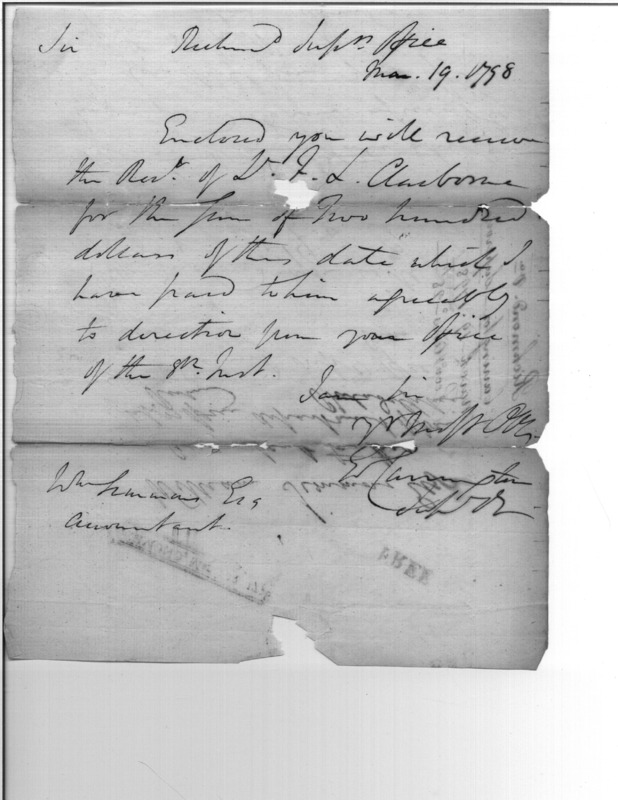 Sir Richmd Supvrs Office
Mar. 19. 1798
Enclosed you will receive
the Rect. of Lt. F. L. Claiborne
for the Sum of Two hundred
dollars of this date which I
have paid to him agreeably
to direction from your Office
of the 8th Inst.
I am Sir
Yr Mo Obt
E Carrington
Wm Simmons Esq
Accountant.
FREE